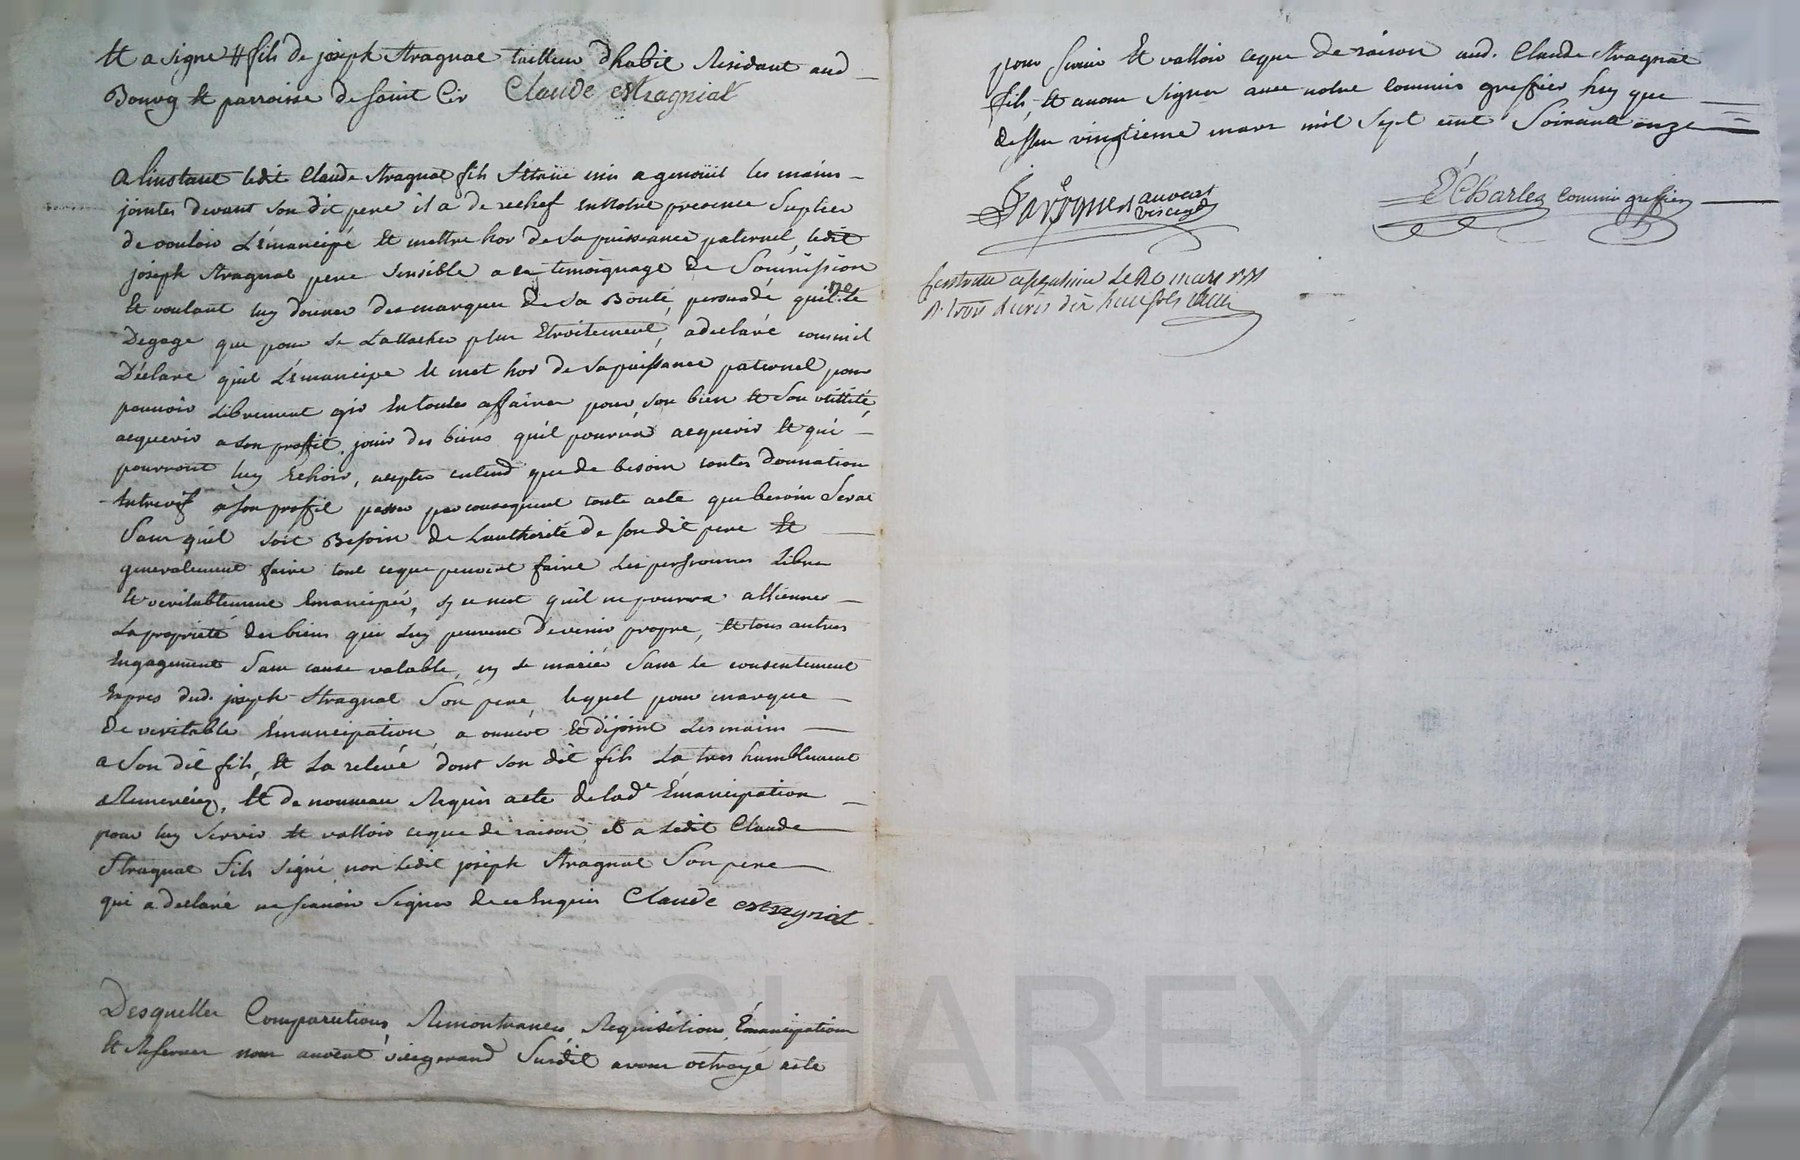 Et a signé # fils de joseph Stragnat tailleur d'habit Résidant aud
Bourg et parroisse de saint Cir Claude estragniat
A linstant ledit Claude Stragnat fils s'étant mis a genouil les mains
jointes devant son dit pere il a de rechef en notre presence suplier
de vouloir L'émancipé Et mettre hor de sa puissance paternel, ledit
joseph Stragnat pere sensible a ce temoignage de Soumission
Et voulant luy donner des marque de sa Bonté, persuadé qu'il ne le
Degage que pour se L'attacher plus Etroitement, a declaré comme il
Déclare qu'il L'émancipe Et met hor de sa puissance paternel pour
pouvoir Librement agir En toutes affaires pour son bien Et Son utillité,
acquerir a son proffit, jouir des biens qu'il pourra acquerir Et qui
pourront luy Echoir, accepter entend que de besoin toutes Donnation
Entrevif a son proffit passer par consequent toute acte que besoin Serat
Sans qu'il soit Besoin de L'authorité de son dit pere Et
generalement faire tout ceque peuvent faire Les personnes Libre
Et veritablement Emancipée, sy ce nest qu'il ne pourra alliener
La proprieté des biens qui Luy peuvent devenir propre, Et tous autres
Engagement Sans cause valable, ny se marier Sans le consentement
Expres dud. joseph Stragnat Son pere, lequel pour marque
de veritable Emancipation, a ouvert Et déjoint Les mains
a Son dit fils, Et La relevé dont son dit fils La tres humblement
Remerciez, Et de nouveau Requis acte de lade Emancipation
pour luy servir Et valloir ceque de raison et a Ledit Claude
Stragnat fils signé non ledit joseph Stragnat Son pere
qui a declaré ne scavoir Signer de ce Enquis Claude estragniat
Desquelles Comparutions, Remontrances Requisitions, Emancipation
Et Reserves nous auvent visegerand Susdit avons octroyé acte
pour servir Et valloir ceque de raison aud. Claude Stragnat
fils, Et avons signer avec notre Commis greffier hey que
dessus vingtieme mars mil Sept cent Soixante onze
auvent
viscegd
D Charles commis greffier
Le 20 mars 1771
R. trois livres dix huit sols
CHAREYRON